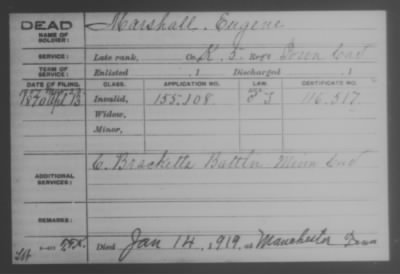 DEAD
NAME OF SOLDIER: Marshall, Eugene
SERVICE: Late rank, Co. K, 5 Reg't Iowa Cav
TERM OF SERVICE: Enlisted , 1 Discharged , 1
DATE OF FILING. CLASS. APPLICATION NO. LAW. CERTIFICATE NO.
1870 Apl 13 Invalid, 155.108 116.517
Widow,
Minor,
ADDITIONAL SERVICES: C. Bracketts Battln Minn Cav
REMARKS:
Died Jan 14, 1919, at Manchester Iowa